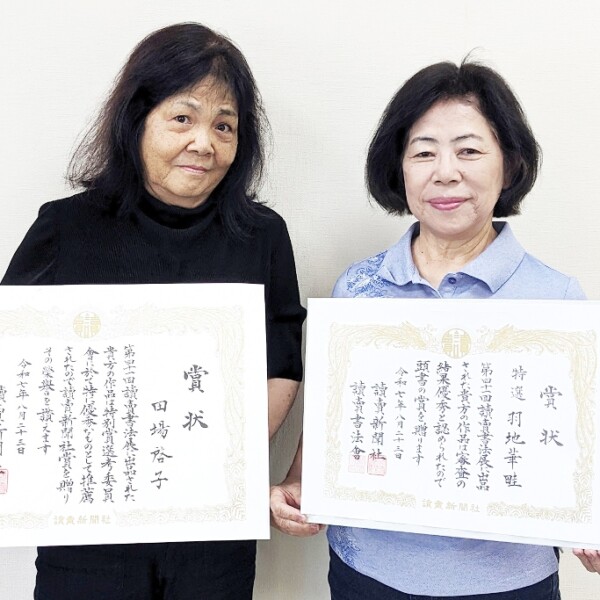 賞状
田場裕子
第四十一回讀賣書法展に出品された
貴方の作品は特別賞選考委員
会に於て特に優秀なものとして推薦
されたので讀賣新聞社賞を贈り
その栄誉を讃えます
令和七年八月二十三日
讀賣新聞
賞状
特選 羽地華畦
第四十一回讀賣書法展に出品
された貴方の作品は審査の
結果優秀と認められたので
頭書の賞を贈ります
令和七年八月二十三日
讀賣新聞社
讀賣書法會
讀賣新聞社